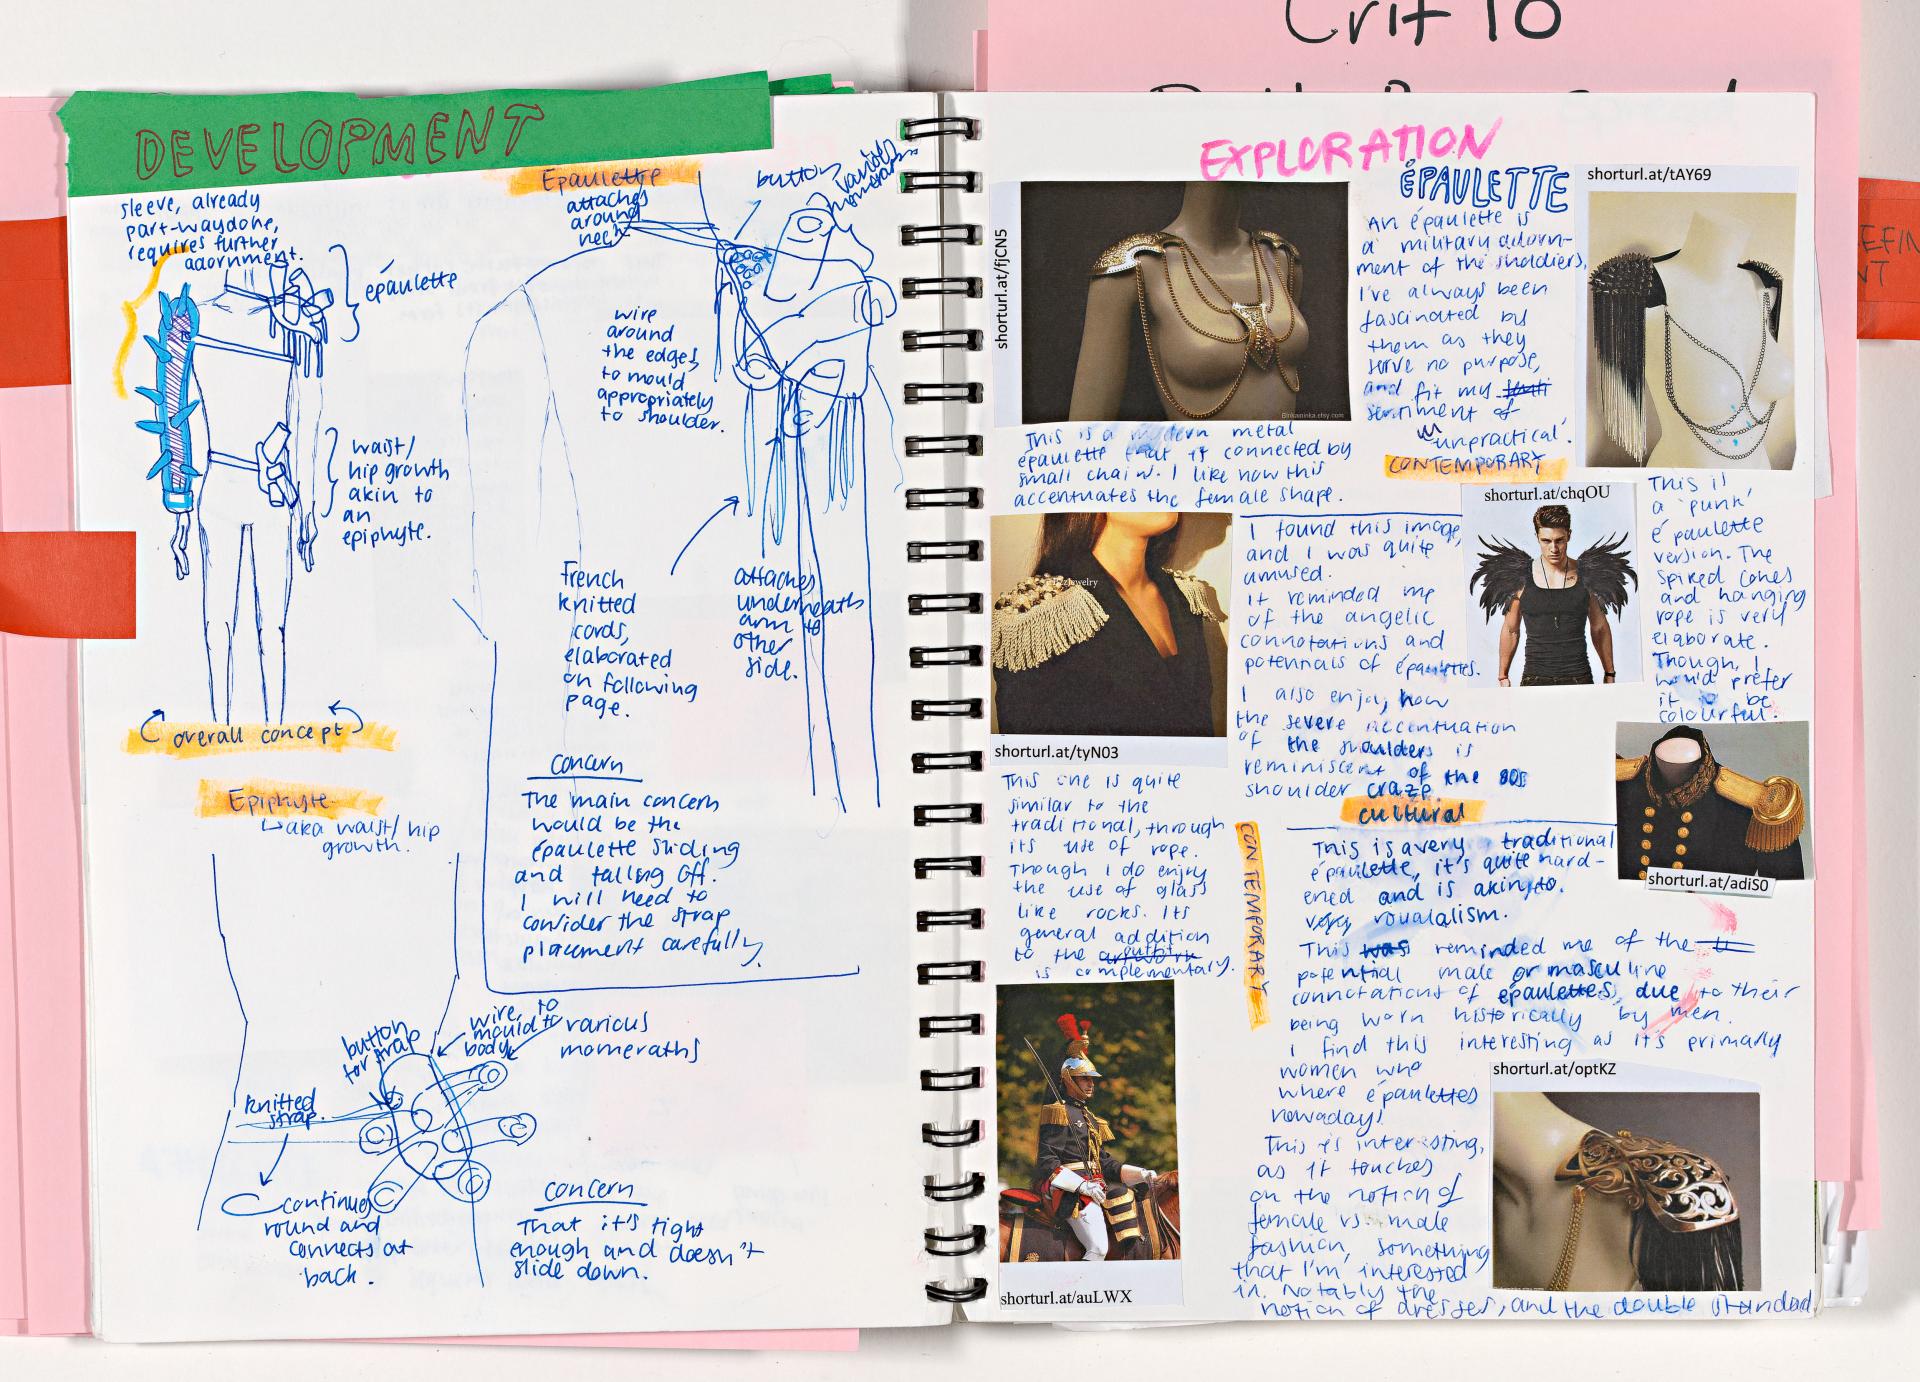 Crit 10
DEVELOPMENT
sleeve, already
part-way done,
requires further
adornment.
épaulette
waist/
hip growth
akin to
an
epiphyte.
overall concept
Epaulette
attaches
around
neck
button
various
momeraths
wire
around
the edges,
to mould
appropriately
to shoulder.
French
knitted
cords,
elaborated
on following
page.
attaches
underneath
arm to
other
side.
Concern
The main concern
would be the
épaulette sliding
and falling off.
I will need to
consider the strap
placement carefully.
Epiphyte
aka waist/hip
growth.
button
for strap
wire, to
mould to
body
various
momeraths
knitted
strap.
continues
round and
connects at
back.
Concern
That it's tight
enough and doesn't
slide down.
EXPLORATION
ÉPAULETTE
shorturl.at/fjCN5
Binkaminka.etsy.com
An épaulette is
a military adorn-
ment of the shoulders,
I've always been
fascinated by
them as they
serve no purpose,
and fit my
sentiment of
'unpractical'.
shorturl.at/tAY69
This is a modern metal
épaulette that it connected by
small chains. I like how this
accentuates the female shape.
CONTEMPORARY
shorturl.at/chqOU
This is
a 'punk'
épaulette
version. The
spiked cones
and hanging
rope is very
elaborate.
Though, I
would prefer
it to be
colourful.
I found this image,
and I was quite
amused.
It reminded me
of the angelic
connotations and
potentials of épaulettes.
I also enjoy, how
the severe accentuation
of the shoulders is
reminiscent of the 80s
shoulder craze
shorturl.at/tyN03
This one is quite
similar to the
traditional, through
its use of rope.
Though I do enjoy
the use of glass
like rocks. Its
general addition
to the artwork outfit
is complementary.
CONTEMPORARY
cultural
This is a very traditional
épaulette, it's quite hard-
ened and is akin to
very royalism.
shorturl.at/adiS0
This was reminded me of the
potential male or masculine
connotations of épaulettes, due to their
being worn historically by men.
I find this interesting as it's primarily
women who
where épaulettes
nowadays!
This is interesting,
as it touches
on the notion of
female vs. male
fashion, something
that I'm interested
in. Notably the
notion of dresses, and the double standard.
shorturl.at/optKZ
shorturl.at/auLWX